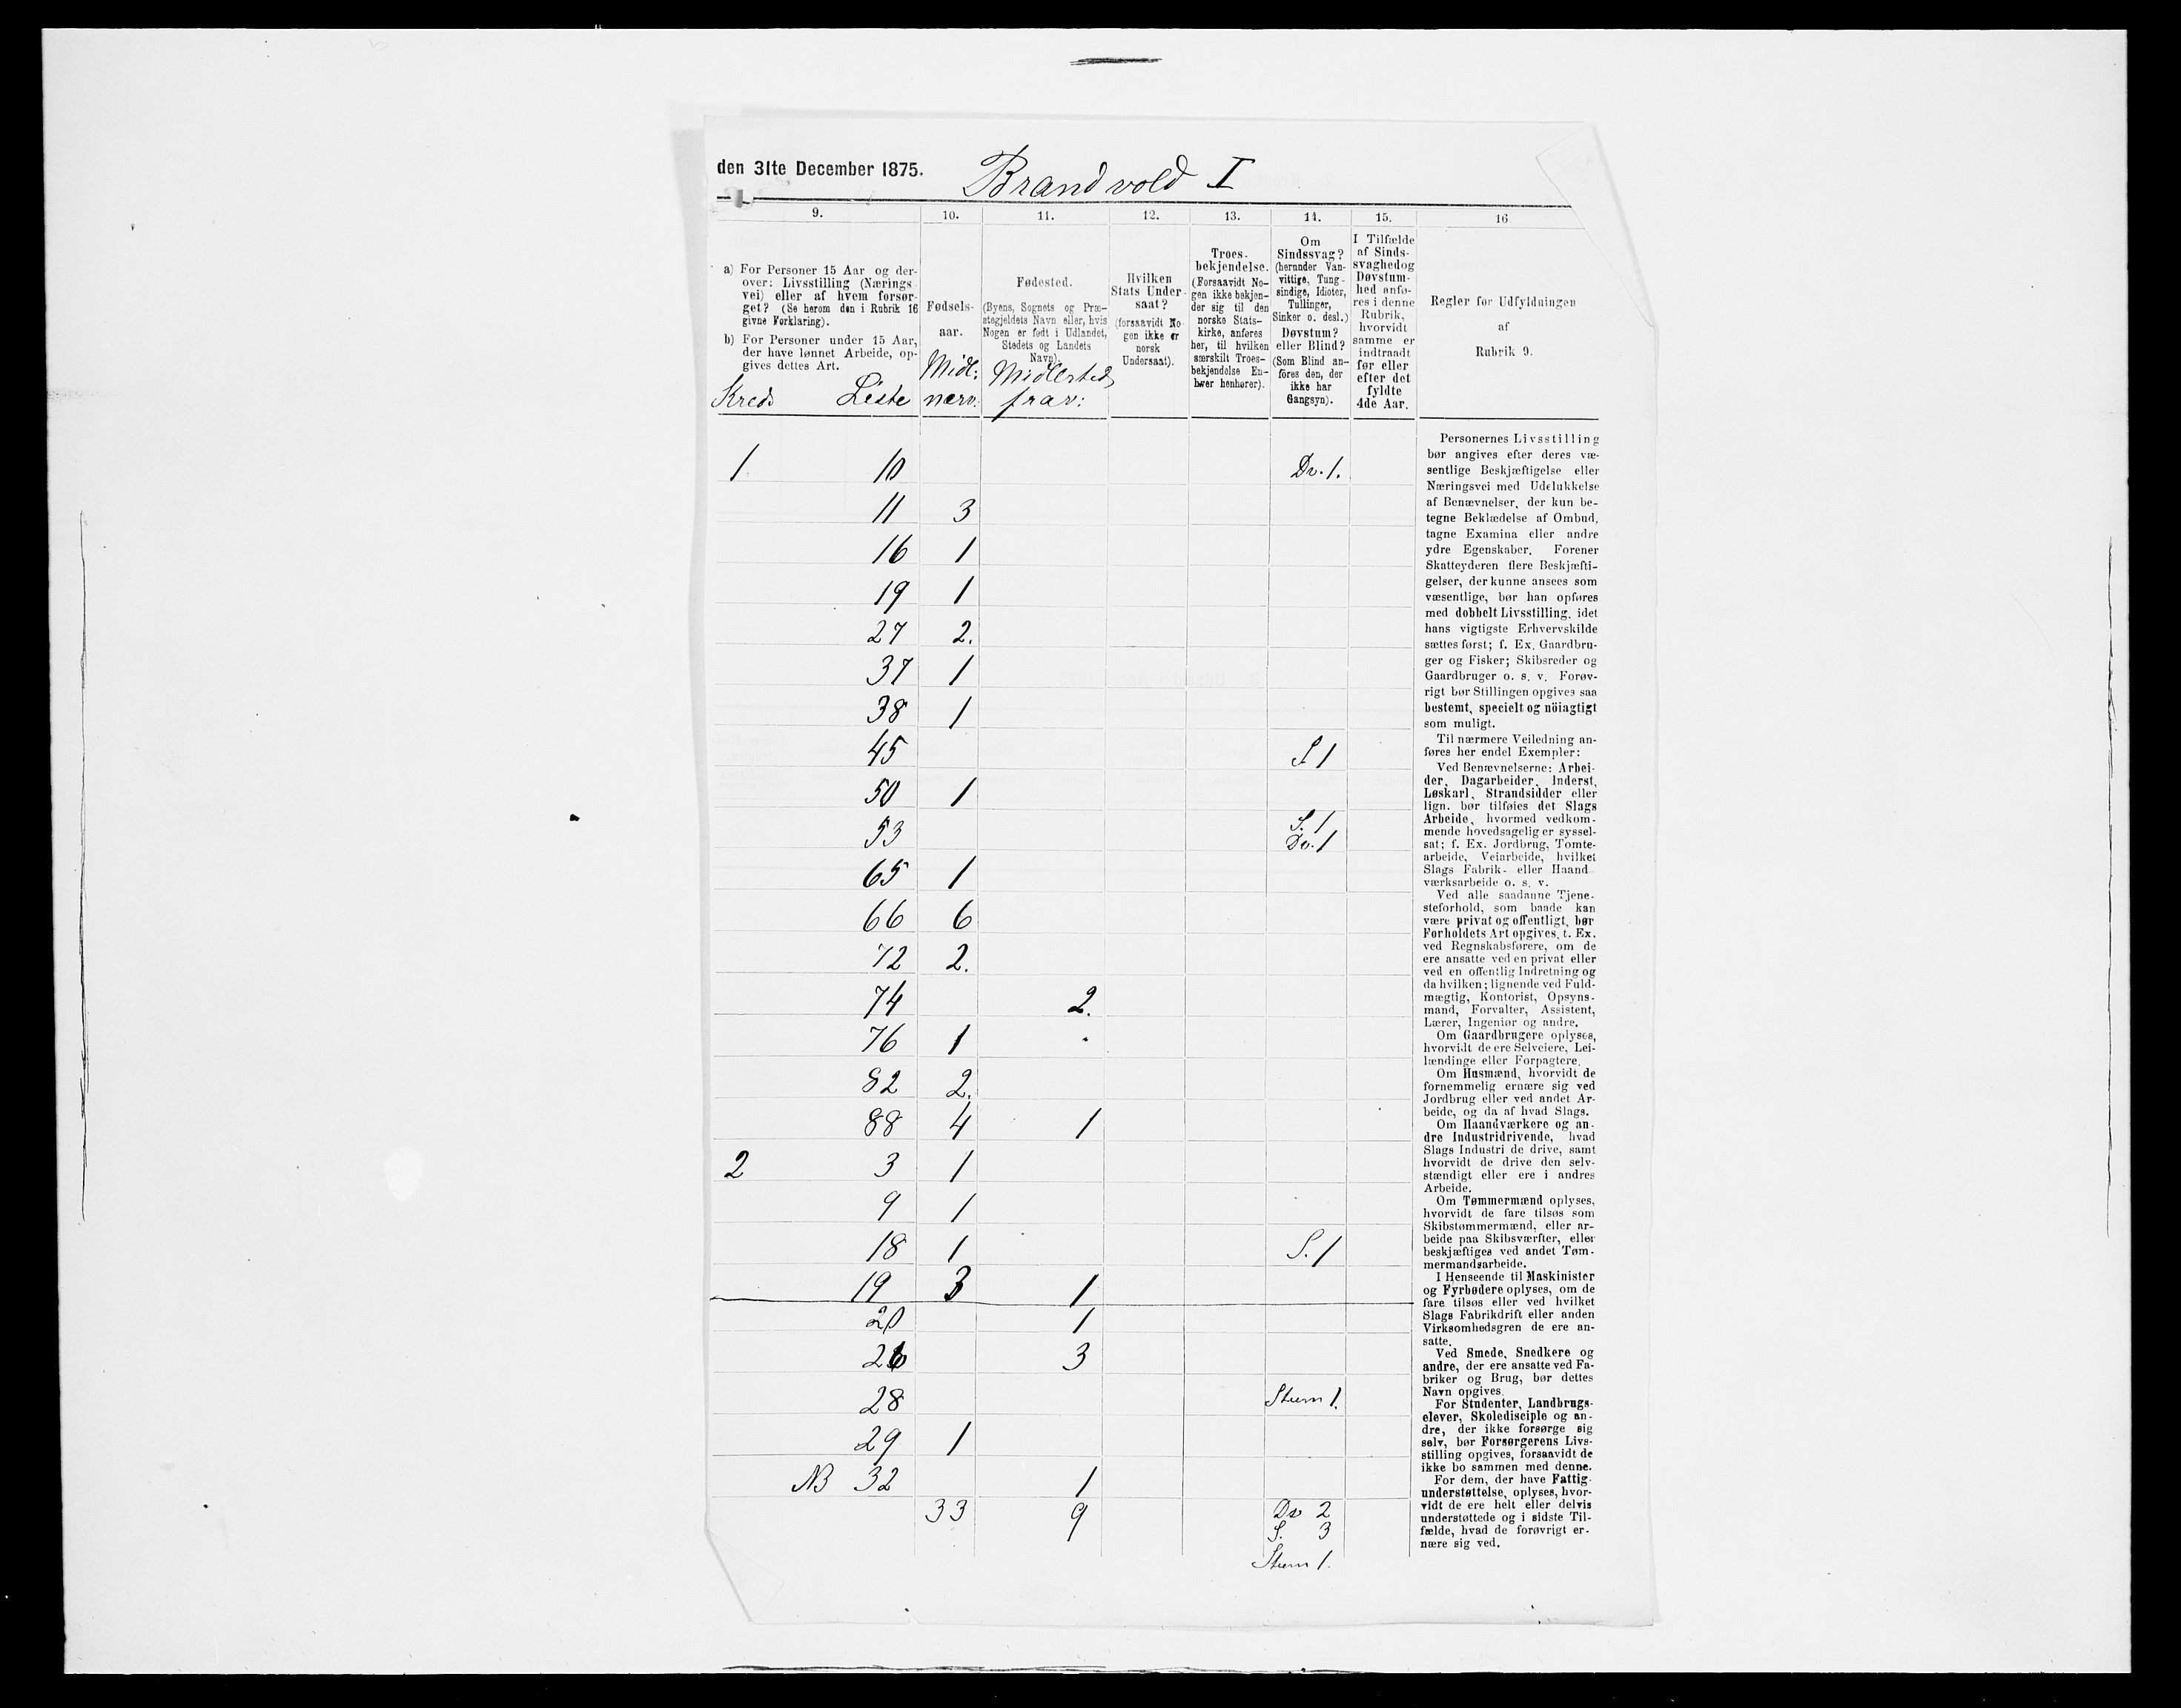 den 31te December 1875. Brandvold I
9. 10. 11. 12. 13. 14. 15. 16
a) For Personer 15 Aar og der-
over: Livsstilling (Nærings-
vei) eller af hvem forsør-
get? (Se herom den i Rubrik 16
givne Forklaring).
b) For Personer under 15 Aar,
der have lønnet Arbeide, op-
gives dettes Art.
Kreds Liste
Fødsels-
aar.
Midl:
nærv:
Fødested.
(Byens, Sognets og Præ-
stegjeldets Navn eller, hvis
Nogen er født i Udlandet,
Stedets og Landets
Navn).
Midlertid
frav:
Hvilken
Stats Under-
saat?
(forsaavidt No-
gen ikke er
norsk
Undersaat).
Troes-
bekjendelse.
(Forsaavidt No-
gen ikke bekjen-
der sig til den
norske Stats-
kirke, anføres
her, til hvilken
særskilt Troes-
bekjendelse En-
hver henhører).
Om
Sindssvag?
(herunder Van-
vittige, Tung-
sindige, Idioter,
Tullinger,
Sinker o. desl.)
Døvstum?
eller Blind?
(Som Blind an-
føres den, der
ikke har
Gangsyn).
I Tilfælde
af Sinds-
svaghed og
Døvstum-
hed anfø-
res i denne
Rubrik,
hvorvidt
samme er
indtraadt
før eller
efter det
fyldte
4de Aar.
Regler for Udfyldningen
af
Rubrik 9.
1 10 Dv. 1.
11 3
16 1
19 1
27 2.
37 1
38 1
45 S 1
50 1
53 S. 1
Dv. 1
65 1
66 6
72 2.
74 2.
76 1
82 2.
88 4 1
2 3 1
9 1
18 1 S. 1
19 3 1
20 1
26 3
28 Stum 1.
29 1
NB 32 1
33 9 Dv 2
S. 3
Stum 1.
Personernes Livsstilling
bør angives efter deres væ-
sentlige Beskjæftigelse eller
Næringsvei med Udelukkelse
af Benævnelser, der kun be-
tegne Beklædelse af Ombud,
tagne Examina eller andre
ydre Egenskaber. Forener
Skatteyderen flere Beskjæfti-
gelser, der kunne ansees som
væsentlige, bør han opføres
med dobbelt Livsstilling, idet
hans vigtigste Erhvervskilde
sættes først; f. Ex. Gaardbru-
ger og Fisker; Skibsreder og
Gaardbruger o. s. v. Forøv-
rigt bør Stillingen opgives saa
bestemt, specielt og nöiagtigt
som muligt.
Til nærmere Veiledning an-
føres her endel Exempler:
Ved Benævnelserne: Arbei-
der, Dagarbeider, Inderst,
Løskarl, Strandsidder eller
lign. bør tilføies det Slags
Arbeide, hvormed vedkom-
mende hovedsagelig er syssel-
sat; f. Ex. Jordbrug, Tomte-
arbeide, Veiarbeide, hvilket
Slags Fabrik- eller Haand
værksarbeide o. s. v.
Ved alle saadanne Tjene-
steforhold, som baade kan
være privat og offentligt, bør
Forholdets Art opgives, t. Ex.
ved Regnskabsførere, om de
ere ansatte ved en privat eller
ved en offentlig Indretning og
da hvilken; lignende ved Fuld-
mægtig, Kontorist, Opsyns-
mand, Forvalter, Assistent,
Lærer, Ingeniør og andre.
Om Gaardbrugere oplyses,
hvorvidt de ere Selveiere, Lei-
lændinge eller Forpagtere.
Om Husmænd, hvorvidt de
fornemmelig ernære sig ved
Jordbrug eller ved andet Ar-
beide, og da af hvad Slags.
Om Haandværkere og an-
dre Industridrivende, hvad
Slags Industri de drive, samt
hvorvidt de drive den selv-
stændigt eller ere i andres
Arbeide.
Om Tømmermænd oplyses,
hvorvidt de fare tilsøs som
Skibstømmermænd, eller ar-
beide paa Skibsværfter, eller
beskjæftiges ved andet Tøm-
mermandsarbeide.
I Henseende til Maskinister
og Fyrbødere oplyses, om de
fare tilsøs eller ved hvilket
Slags Fabrikdrift eller anden
Virksomhedsgren de ere an-
satte.
Ved Smede, Snedkere og
andre, der ere ansatte ved Fa-
briker og Brug, bør dettes
Navn opgives.
For Studenter, Landbrugs-
elever, Skoledisciple og an-
dre, der ikke forsørge sig
selv, bør Forsørgerens Livs-
stilling opgives, forsaavidt de
ikke bo sammen med denne.
For dem, der have Fattig-
understøttelse, oplyses, hvor-
vidt de ere helt eller delvis
understøttede og i sidste Til-
fælde, hvad de forøvrigt er-
nære sig ved.